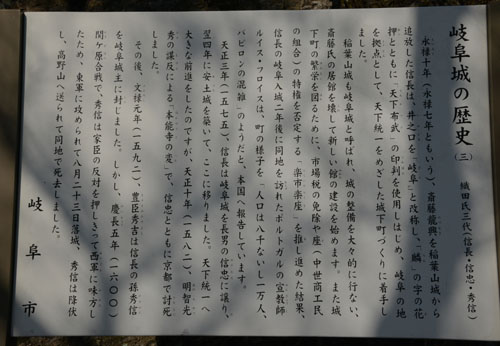 岐阜城の歴史(三)
織田氏三代(信長・信忠・秀信)
永禄十年(永禄七年ともいう)、斎藤龍興を稲葉山城から
追放した信長は、井之口を「岐阜」と改称し、「麟」の字の花
押とともに「天下布武」の印判を使用しはじめ、岐阜の地
を拠点として、天下統一をめざした城下町づくりに着手し
ました。
稲葉山城も岐阜城と呼ばれ、城の整備を大々的に行ない、
斎藤氏の居館を壊して新しい館の建設を始めます。また城
下町の繁栄を図るために、市場税の免除や座(中世商工民
の組合)の特権を否定する「楽市楽座」を推し進めた結果、
信長の岐阜入城二年後に同地を訪れたポルトガルの宣教師
ルイス・フロイスは、町の様子を「人口は八千ないし一万人、
バビロンの混雑」のようだと、本国へ報告しています。
天正三年(一五七五)、信長は岐阜城を長男の信忠に譲り、
翌四年に安土城を築いて、ここに移りました。天下統一へ
大きな前進をしたのですが、天正十年(一五八二)、明智光
秀の謀反による「本能寺の変」で、信忠とともに京都で討死
しました。
その後、文禄元年(一五九二)豊臣秀吉は信長の孫秀信
を岐阜城主に封じました。しかし、慶長五年(一六〇〇)
関ケ原合戦で、秀信は家臣の反対を押しきって西軍に味方し
たため、東軍に攻められて八月二十三日落城、秀信は降伏
し、高野山へ送られて同地で死去しました。
岐阜市